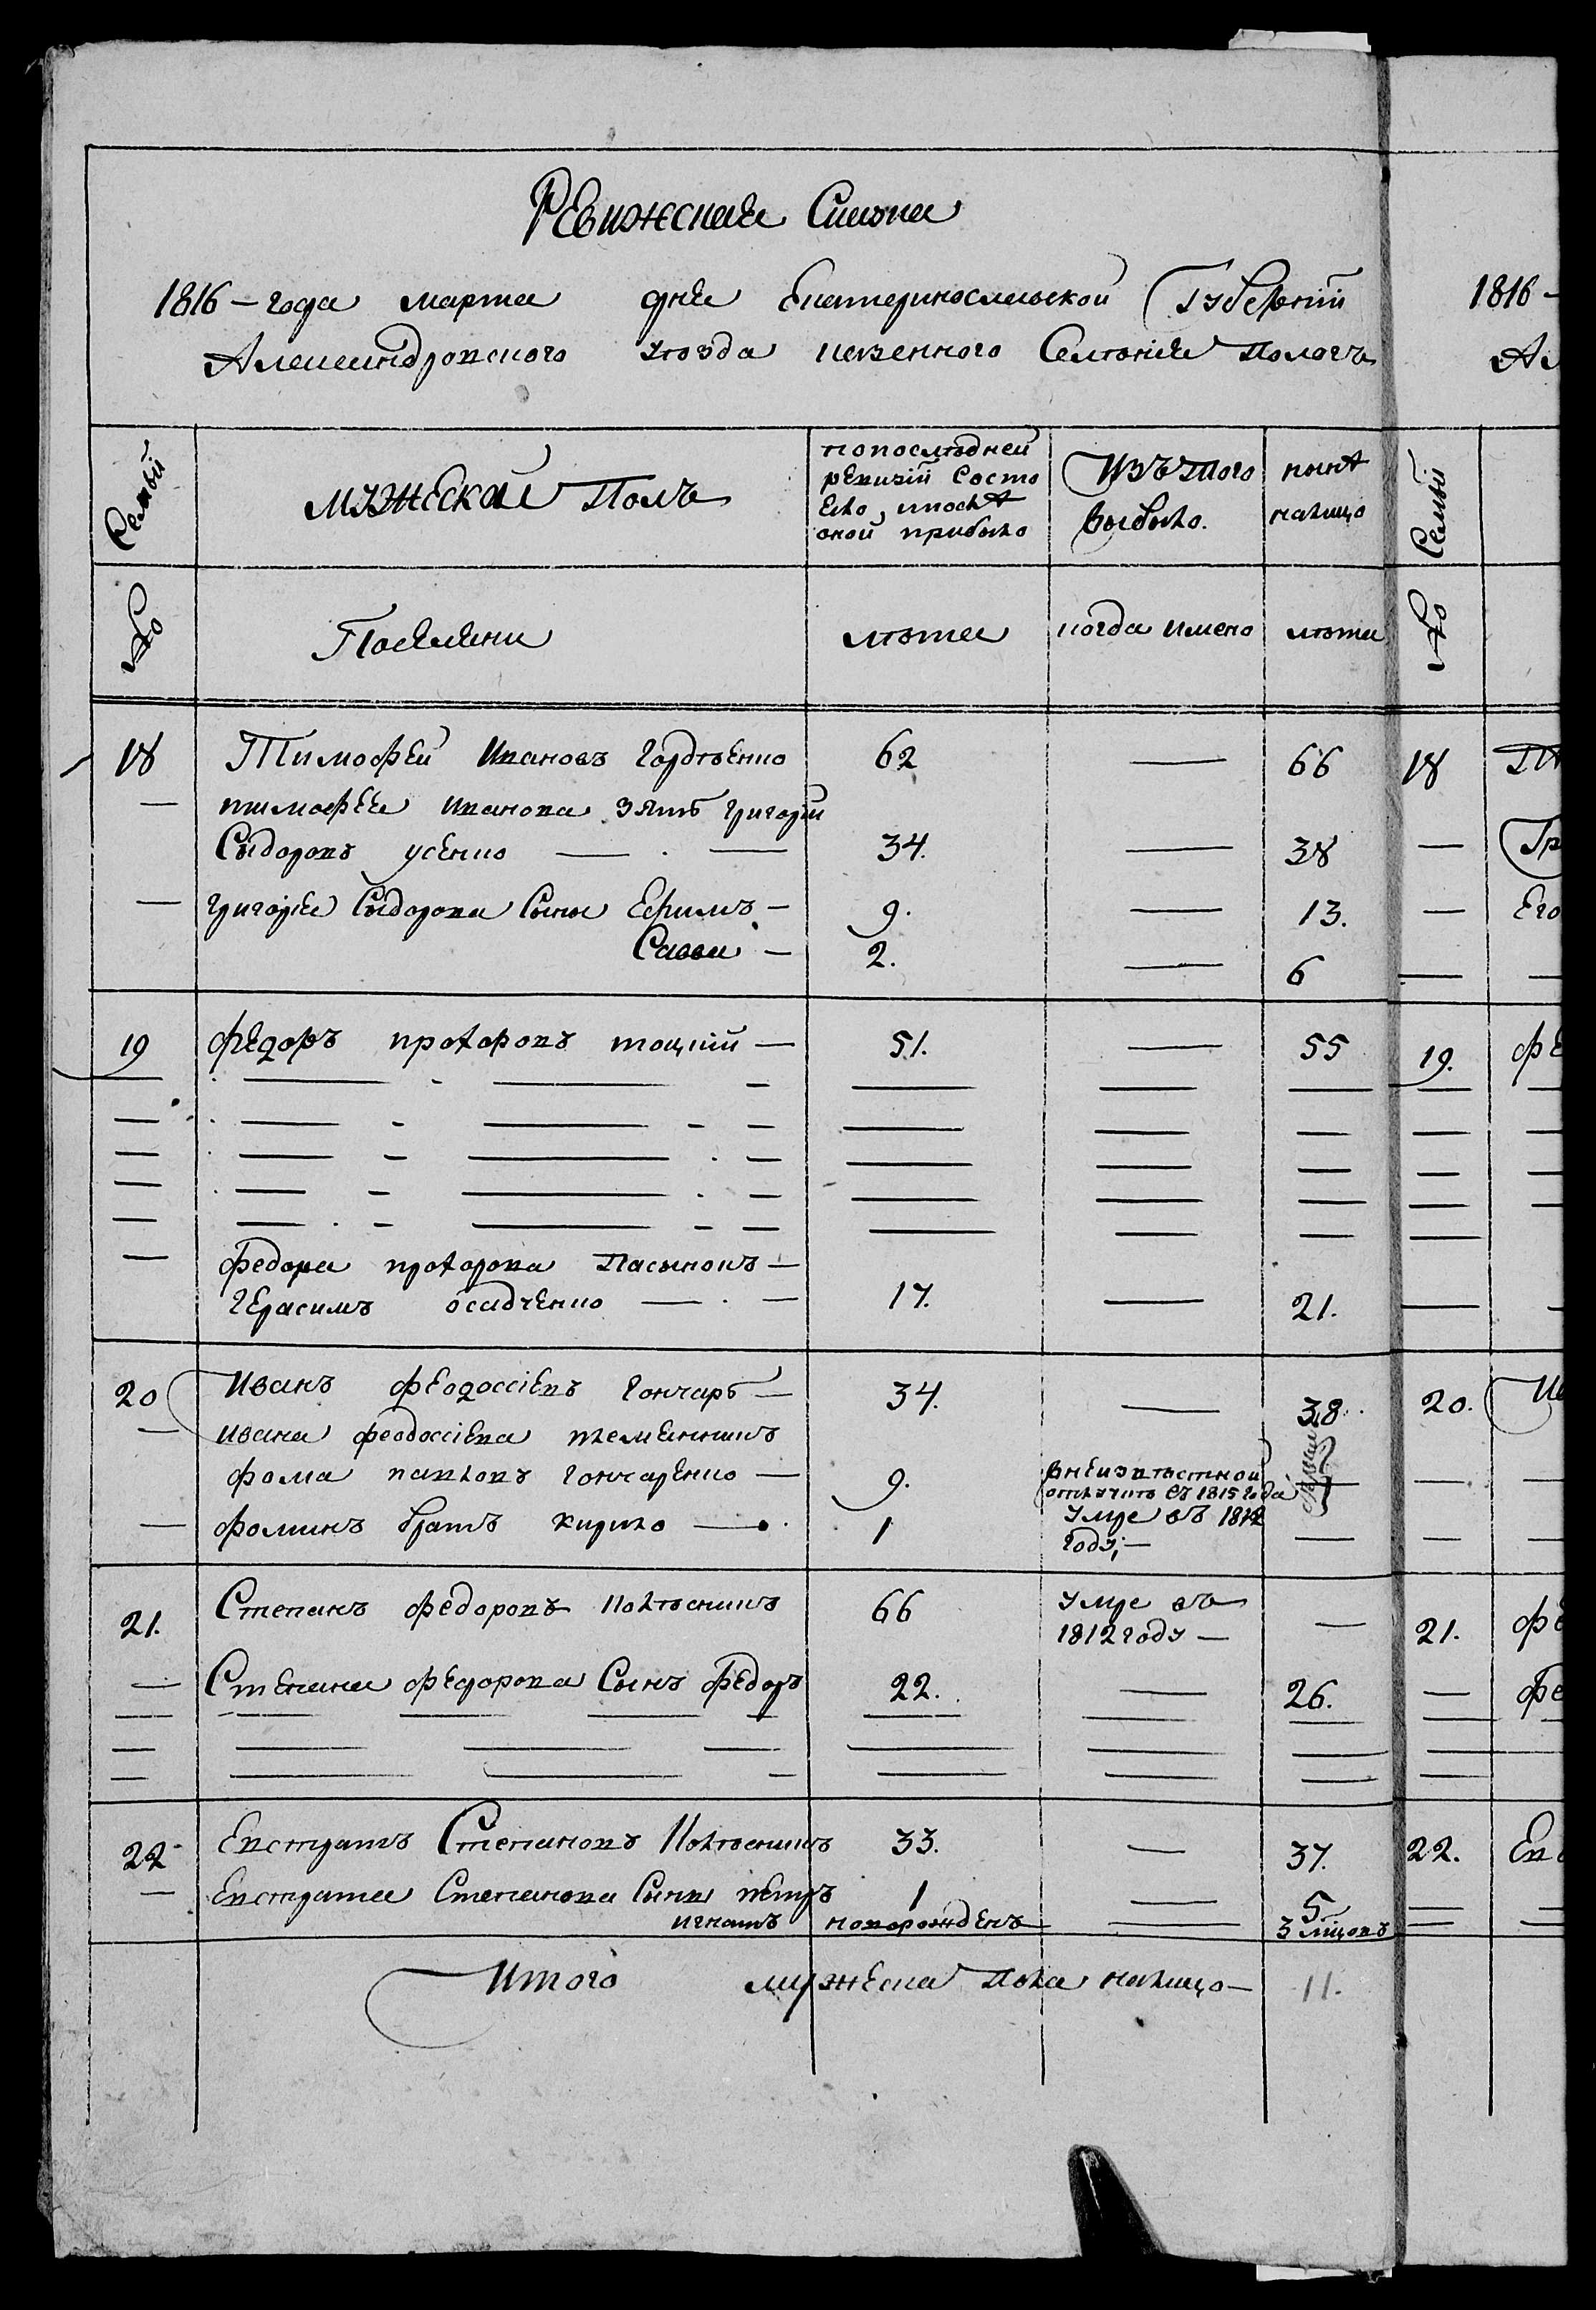 Ревижская Скаска
1816 – года марта дня Екатеринославской Губерній
Александровского уѣзда казенного Селѣния Пологъ
Семьи
мужеской Полъ
попослѣдней ревизій состояло, и послѣ оной прибыло
Изътого выбыло.
нынѣ налицо
№
Поселяни
лѣта
когда имено
лѣта
18 Тимофей Ивановъ Гордѣенко 62 — 66
— тимофея иванова зять григорий
Сыдоровъ усенко — 34. — 38
— григория Сыдорова Сыны Ефимъ – 9. — 13.
Савва – 2. — 6
19 федоръ протофовъ тоцкий – 51. — 55
— федора проторова Пасынокъ –
герасимъ осадченко — 17. — 21.
20 Иванъ феодосіевъ гончаръ – 34. — 38.
— ивана феодосіева племянникъ
фома павловъ гончаренко – 9. внеизвѣстной отлучкѣ съ 1815 года
— фоминъ братъ кирило — 1 умре въ 1812 году, — —
21. Степанъ федоровъ колѣсникъ 66 умре въ 1812 году — —
— Степана федорова Сынъ федоръ 22. — 26.
22 Евстратъ Степановъ колѣсникъ 33. — 37.
— Евстрата Степанова Сыны петръ 1 — 5
игнатъ новорожденъ — 3 мцовъ
Итого мужеска пола налицо – 11.
1816 –
Ал
Семьи
№
18
— Гр
— Его
19. фе
20. Ив
21. фе
— фе
22. Ев